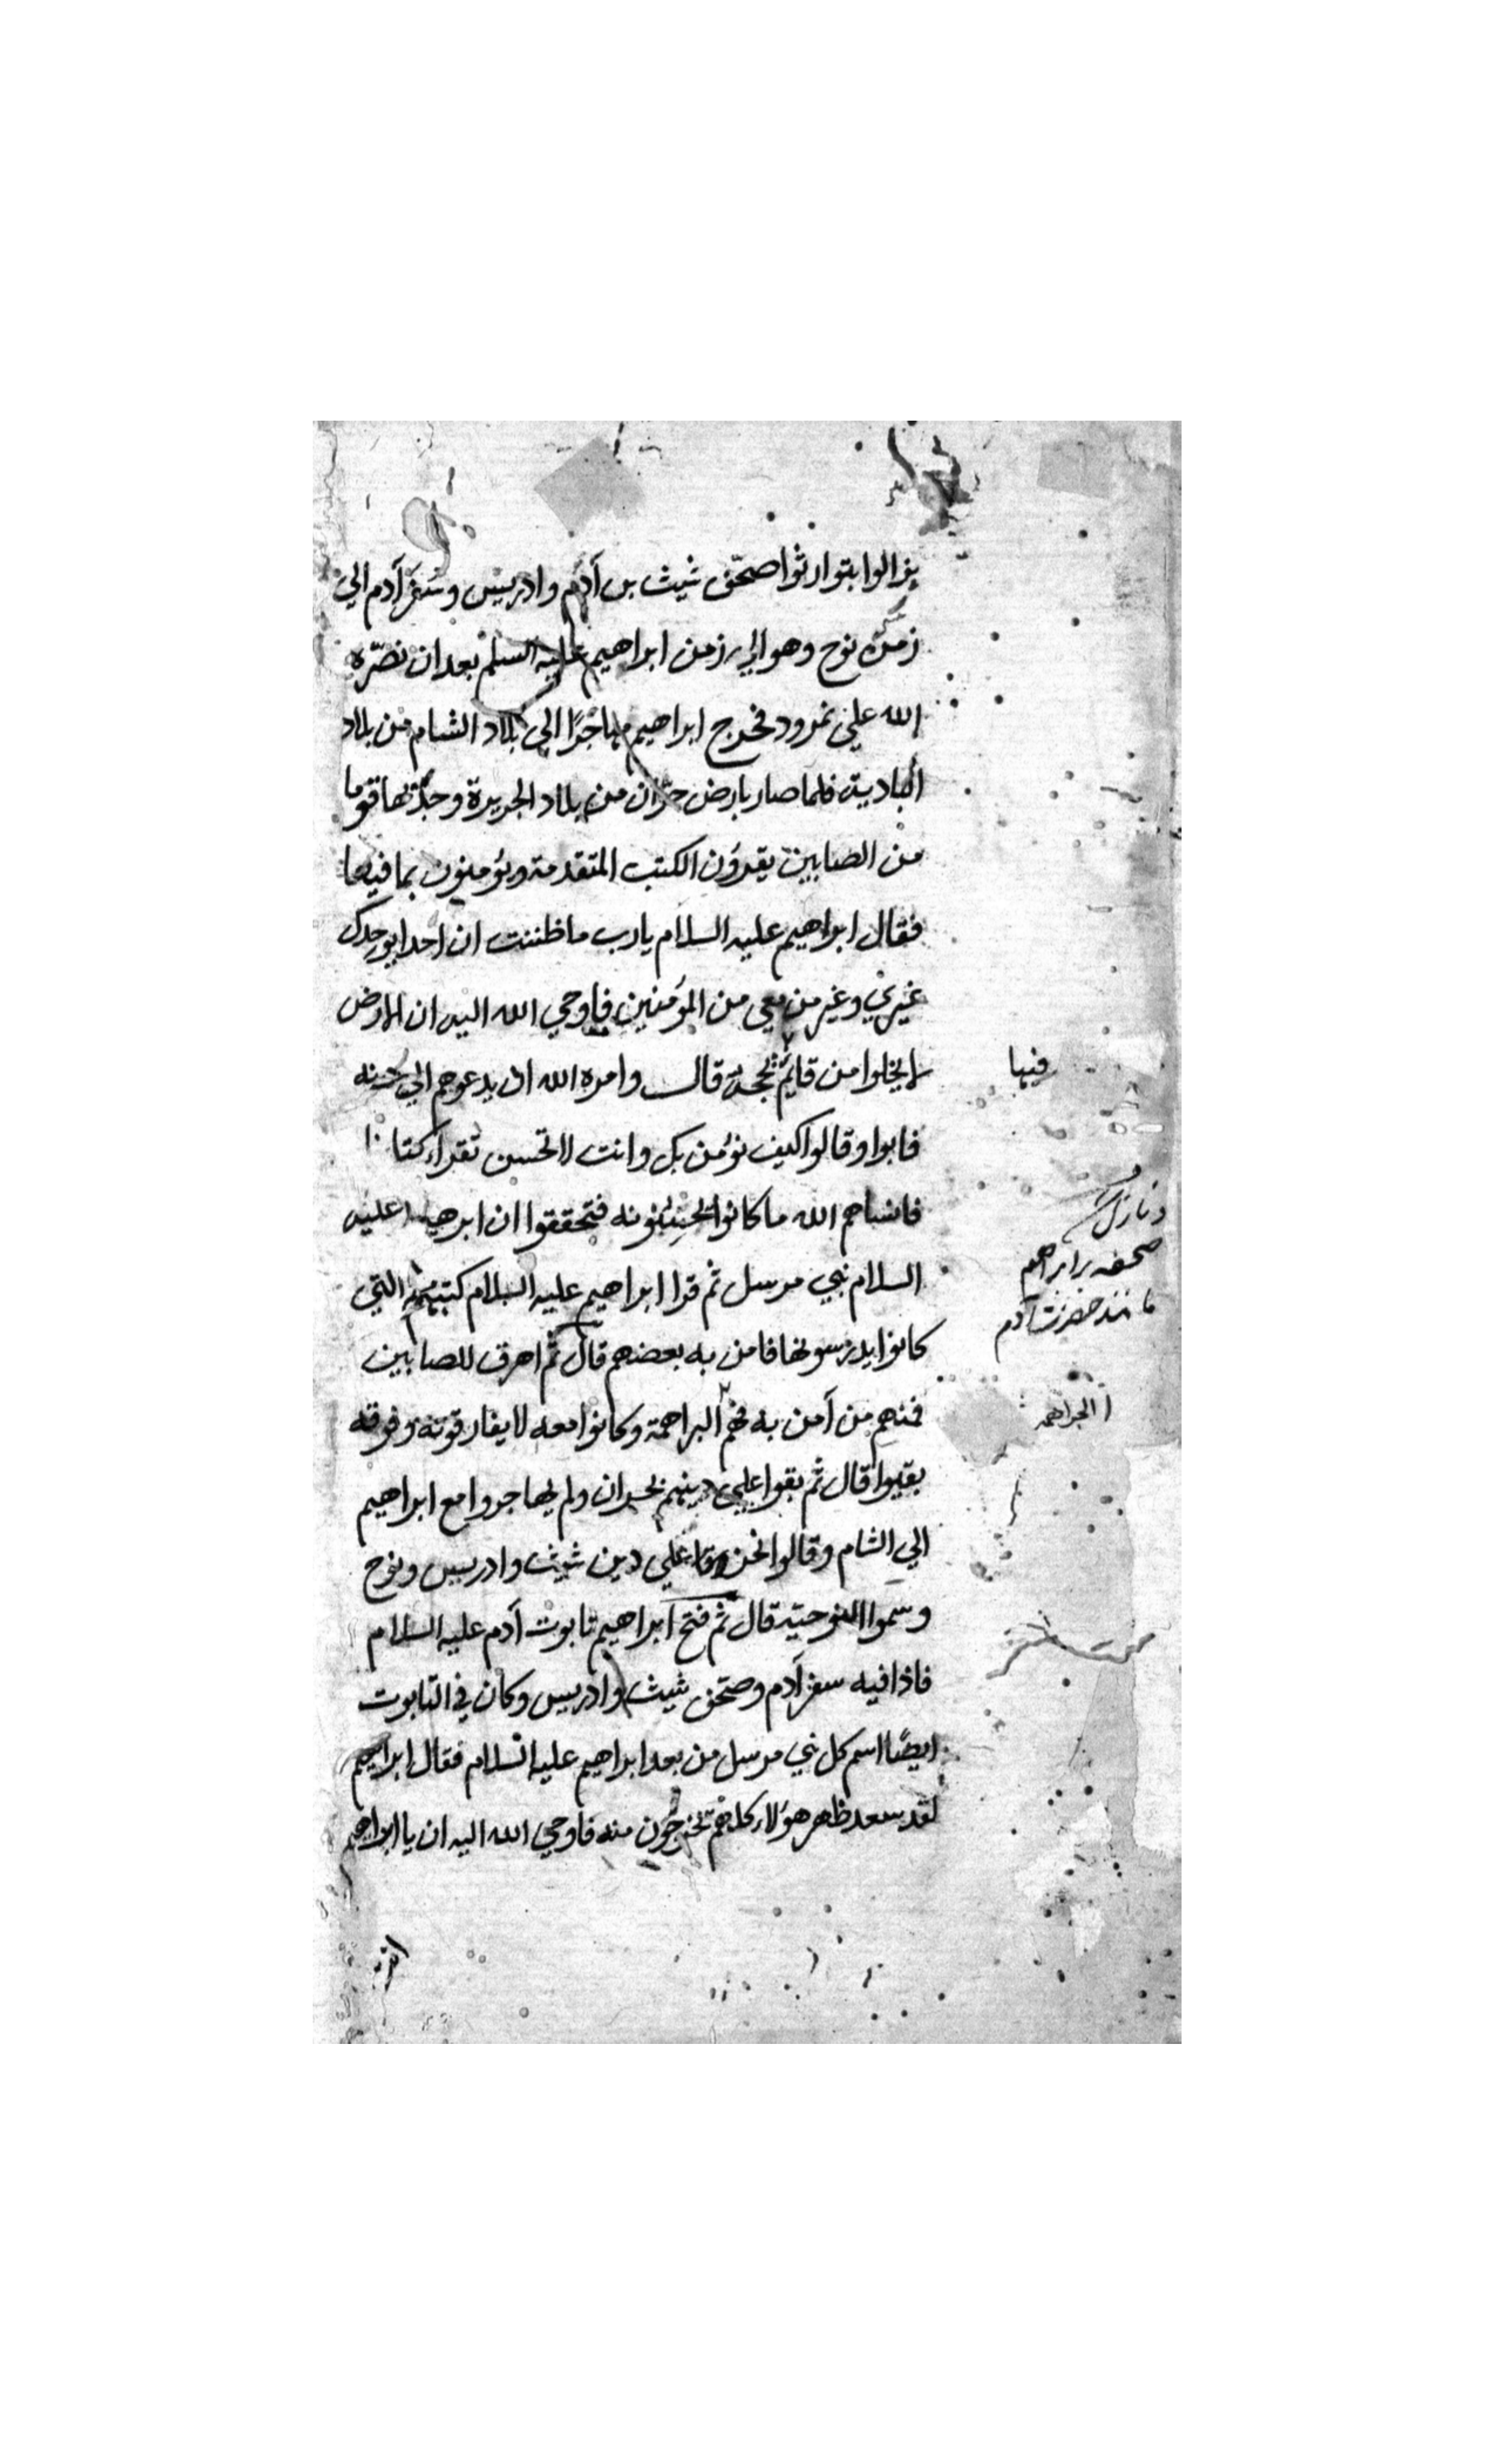 يزالوا يتوارثوا صحف شيث بن آدم وادريس وسفر آدم الي
زمن نوح وهو الي زمن ابراهيم عليه السلم بعد ان نصره
الله علي نمرود فخرج ابراهيم مهاجرًا الي بلاد الشام من بلاد
البادية فلما صار بارض حرّان من بلاد الجزيرة وجد بها قوما
من الصابين يقرؤن الكتب المتقدمة ويؤمنون بما فيها
فقال ابراهيم عليه السلام يارب ما ظننت ان احدا يوحدك
غيري وغير من معي من المؤمنين فاوحي الله اليه ان الارض
لا يخلوا من قايم بحجة قال وامره الله ان يدعوهم الي
فيها
فابوا وقالوا كيف نؤمن بك وانت لا تحسن تقرا كتابا
فانساهم الله ما كانوا فتحققوا ان ابرهيم عليه
السلام نبي مرسل ثم قرا ابراهيم عليه السلام كتبهم التي
صحف بر ابراهيم
مانند حضرت آدم
كانوا يدرسونها فامن به بعضهم قال ثم للصابين
فمنهم من آمن به فهم البراهمة وكانوا معه لا يفارقونه وفرقه
البراهمه
بقيوا قال ثم بقوا علي دينهم بحران ولم يهاجروا مع ابراهيم
الي الشام وقالوا نحن علي دين شيث وادريس ونوح
وسموا النوحية قال ثم فتح ابراهيم تابوت آدم عليه السلام
فاذا فيه سفر آدم وصحف شيث وادريس وكان في التابوت
ايضًا اسم كل نبي مرسل من بعد ابراهيم عليه السلام فقال ابراهيم
لقد سعد ظهر هؤلاء كلهم يخرجون منه فاوحي الله اليه ان يا ابراهيم